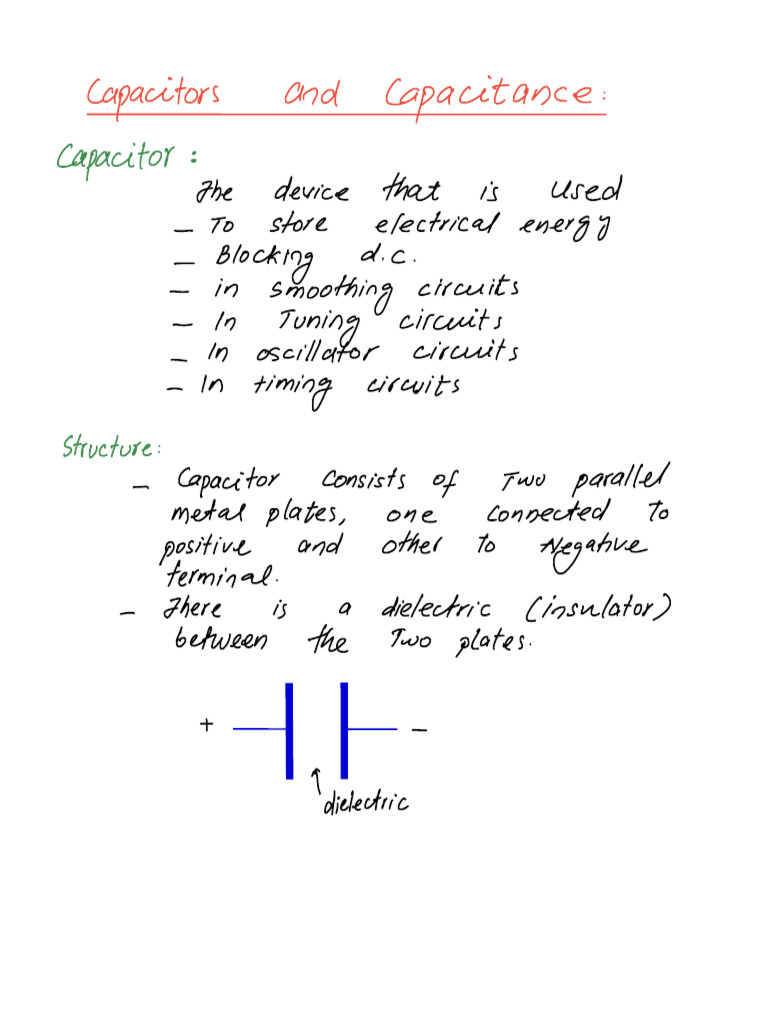 Capacitors and Capacitance:
Capacitor:
The device that is used
- To store electrical energy
- Blocking d.c.
- in smoothing circuits
- In Tuning circuits
- In oscillator circuits
- In timing circuits
Structure:
- Capacitor consists of Two parallel
metal plates, one connected to
positive and other to Negative
terminal.
- There is a dielectric (insulator)
between the Two plates.
+ -
dielectric